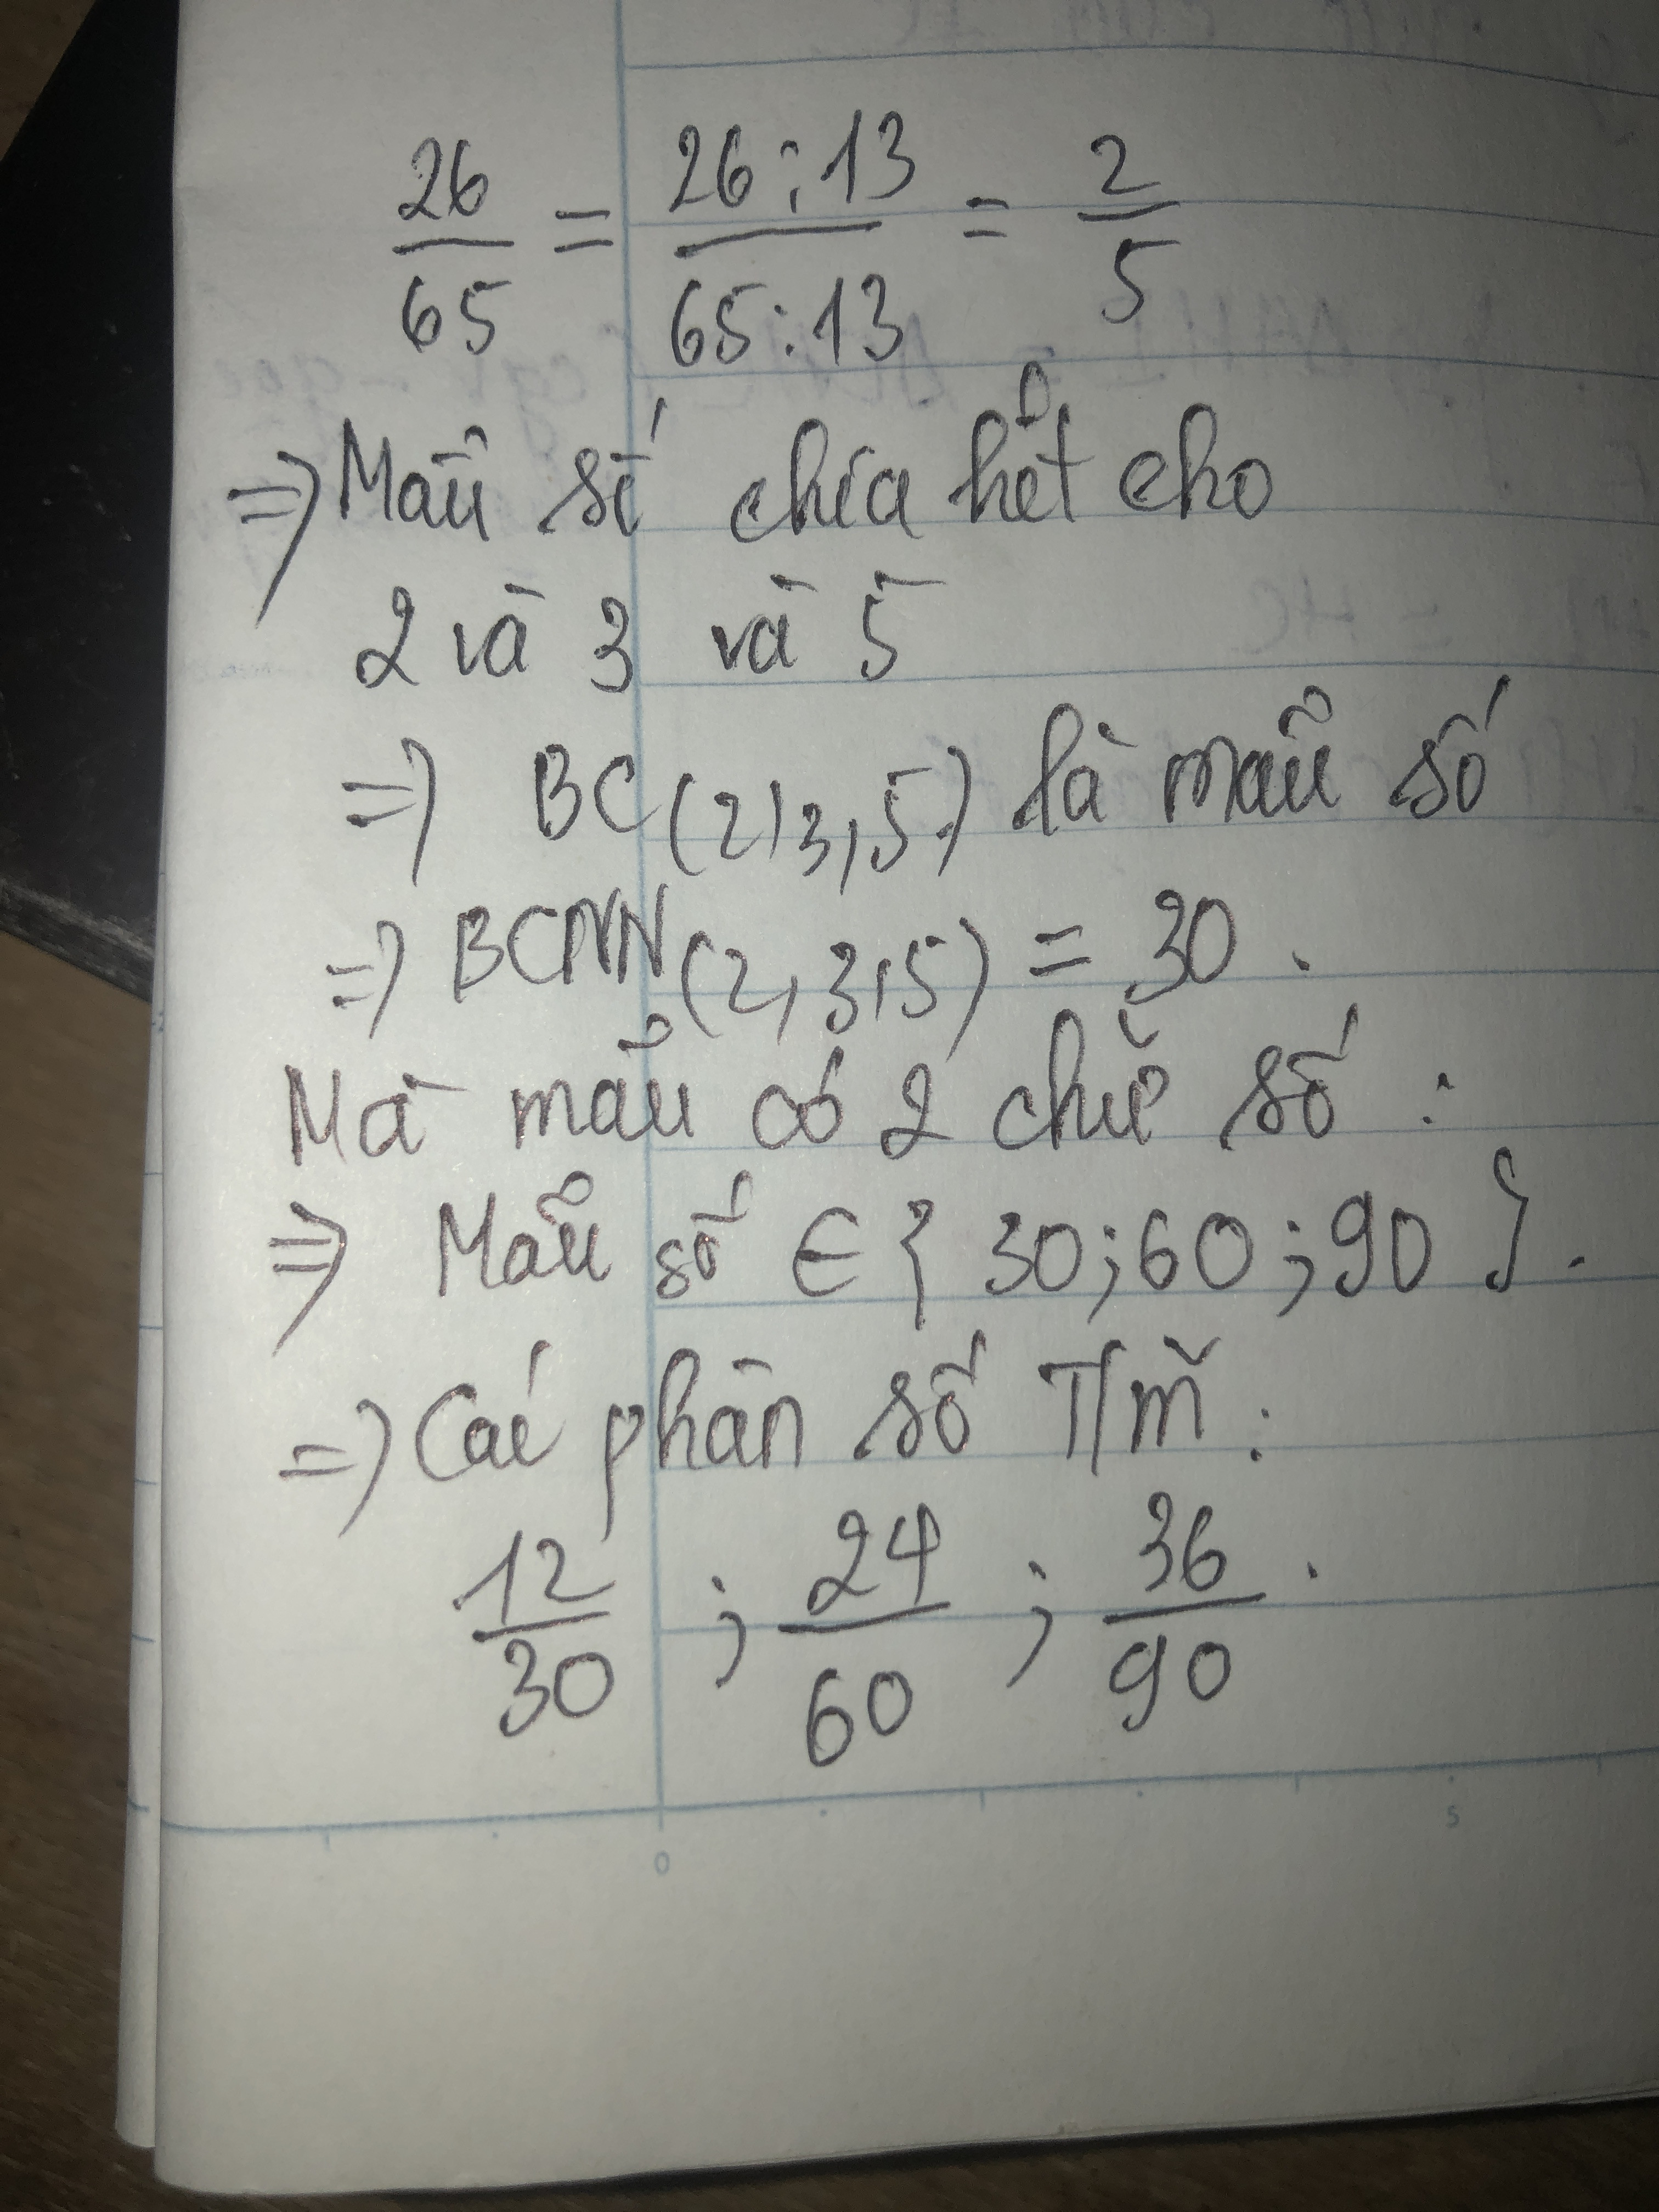 26/65 = 26:13/65:13 = 2/5
=> Mẫu số chia hết cho
2 và 3 và 5
=> BC(2,3,5) là mẫu số
=> BCNN(2,3,5) = 30.
Mà mẫu có 2 chữ số:
=> Mẫu số ∈ {30;60;90}.
=> Các phân số T/m:
12/30 ; 24/60 ; 36/90.
0 5